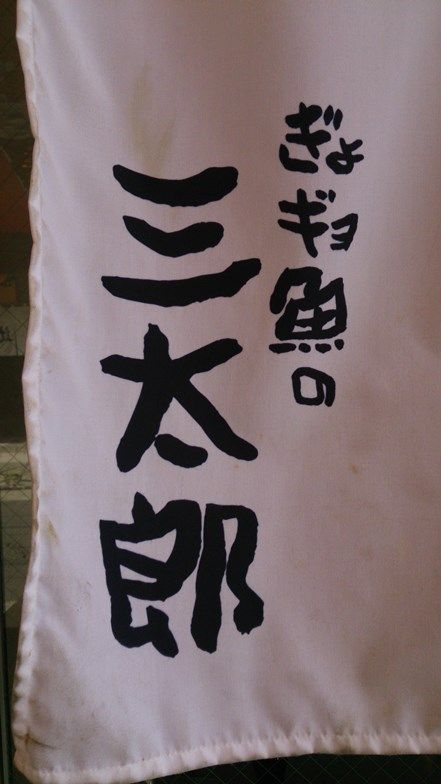 ぎょギョ魚の
三太郎